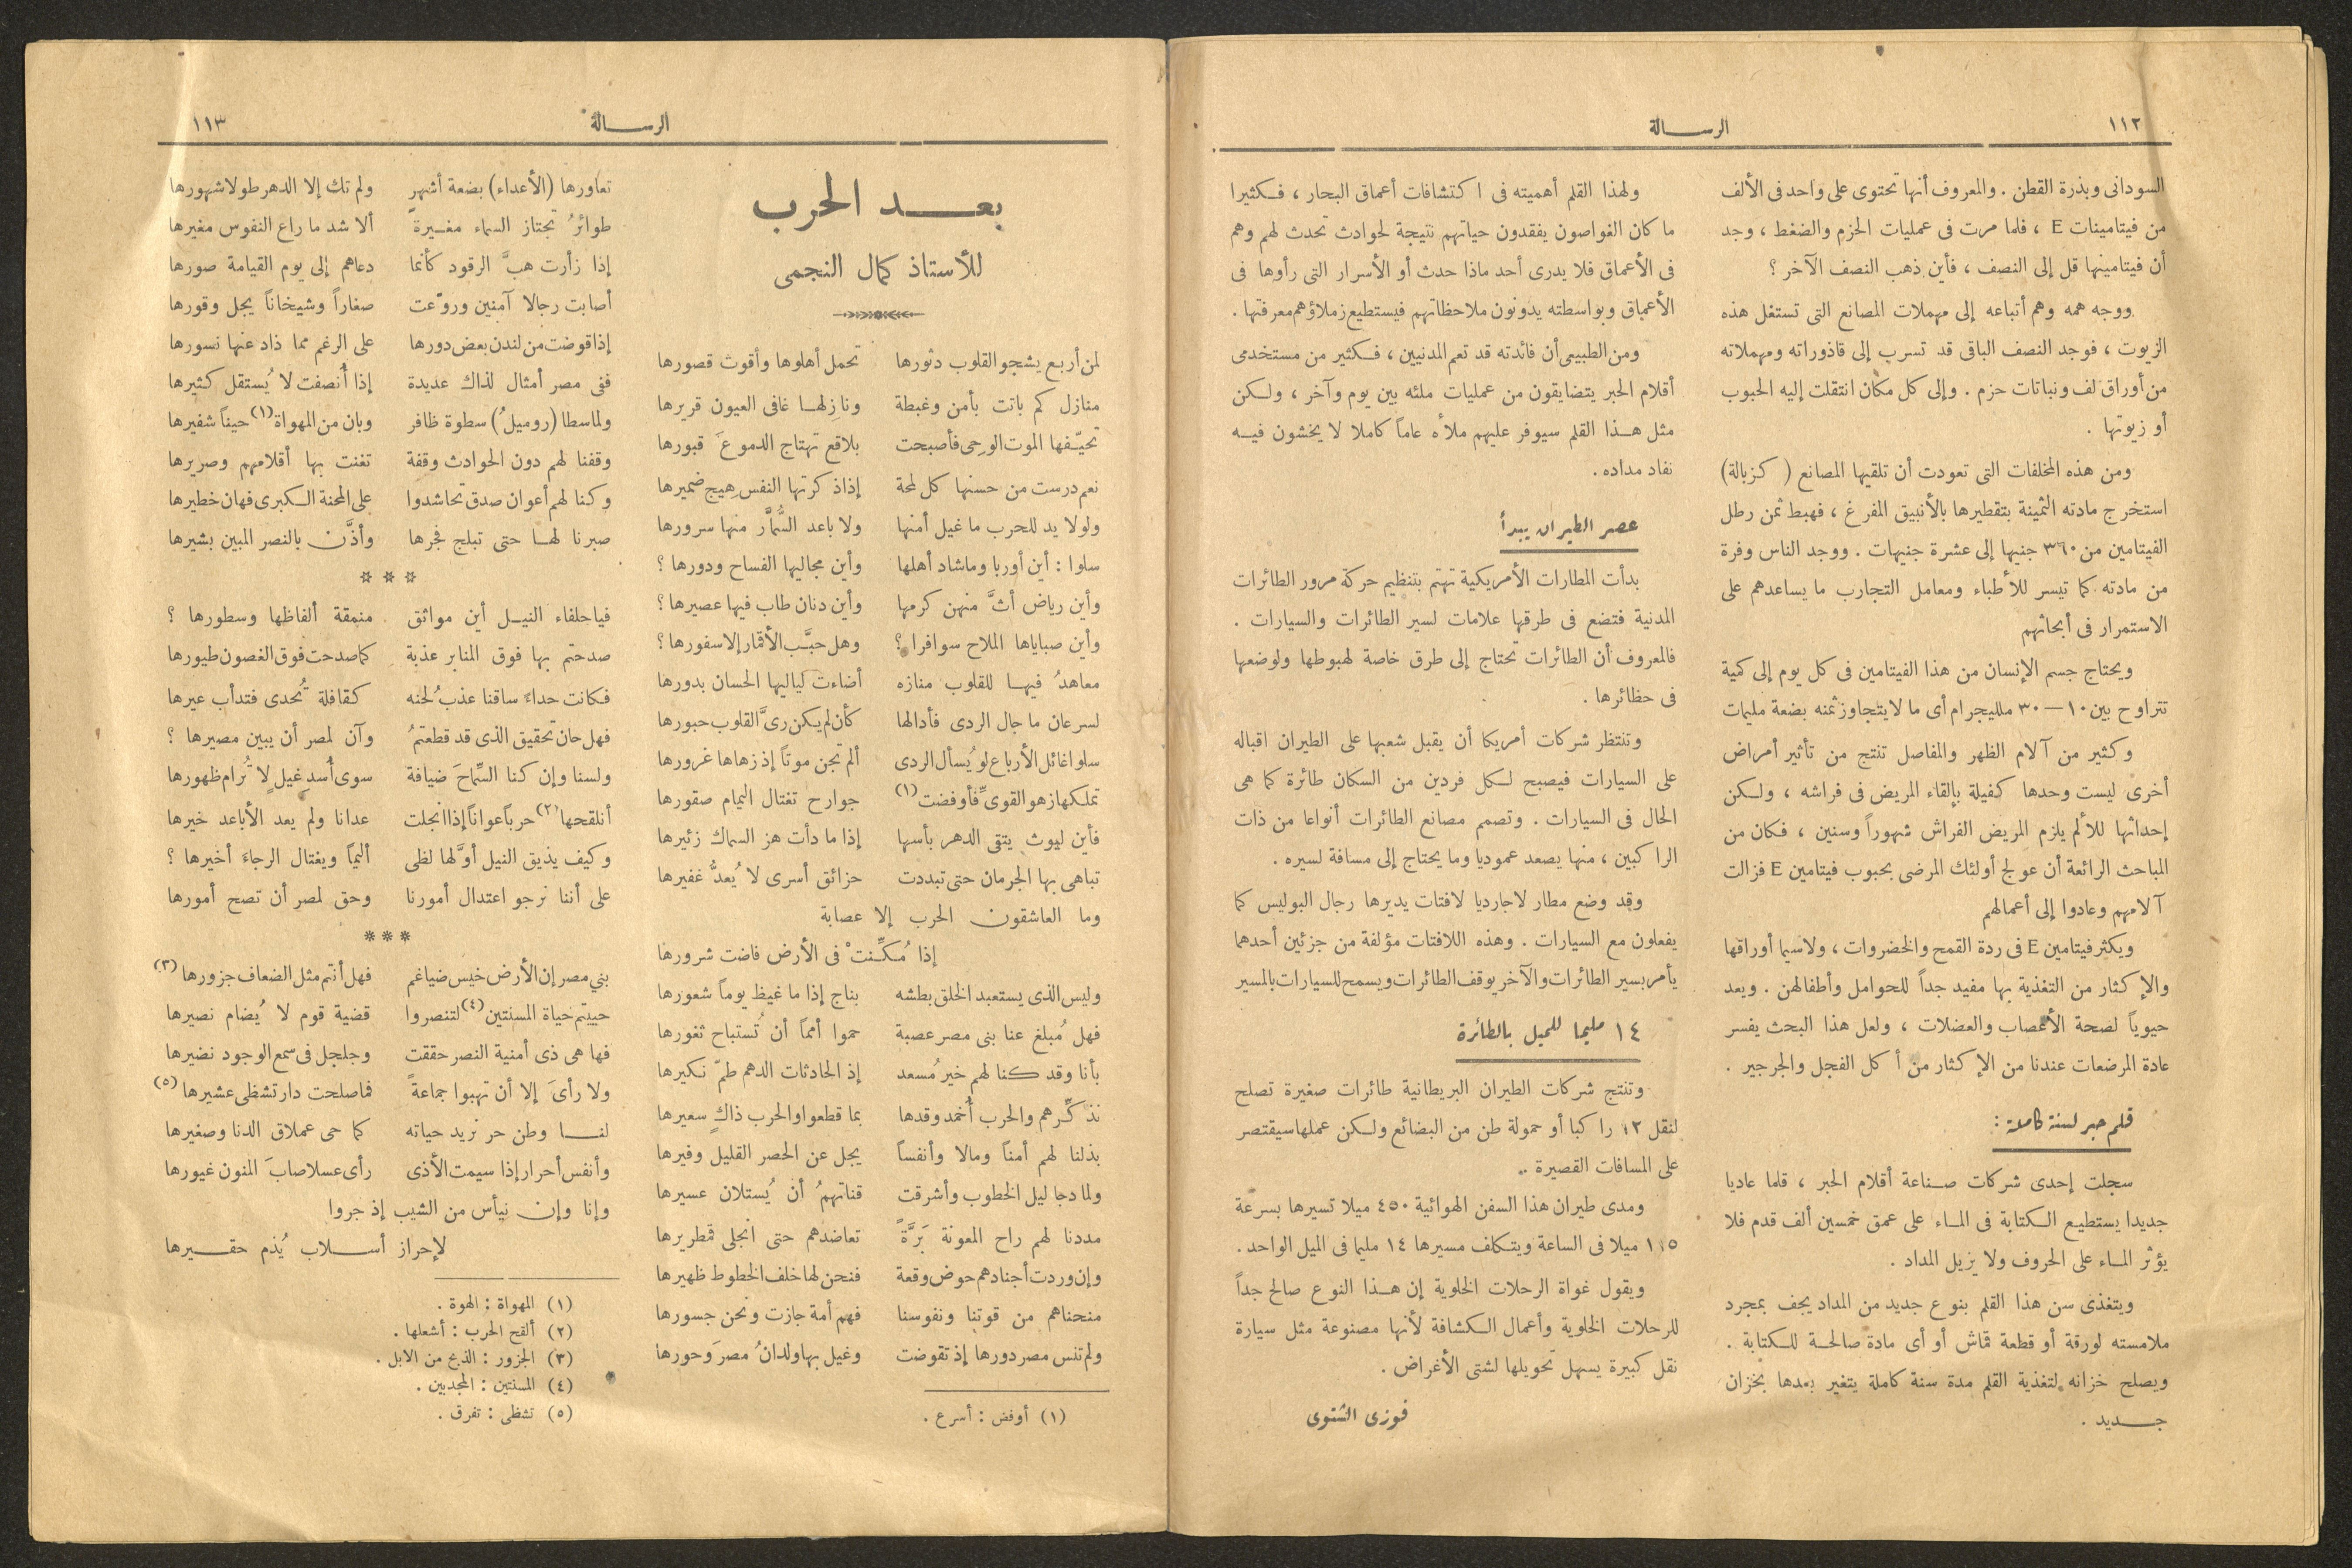 ١١٢
الرسالة
السودانى وبذرة القطن . والمعروف أنها تحتوى على واحد فى الألف
من فيتامينات E ، فلما مرت فى عمليات الحزم والضغط ، وجد
أن فيتامينها قل إلى النصف ، فأين ذهب النصف الآخر ؟
ووجه همه وهم أتباعه إلى مهملات المصانع التى تستغل هذه
الزيوت ، فوجد النصف الباقى قد تسرب إلى قاذوراته ومهملاته
من أوراق لف ونباتات حزم . وإلى كل مكان انتقلت إليه الحبوب
أو زيوتها .
ومن هذه المخلفات التى تعودت أن تلقيها المصانع ( كزبالة)
استخرج مادته الثمينة بتقطيرها بالأنبيق المفرغ ، فهبط ثمن رطل
الفيتامين من ٣٦٠ جنيها إلى عشرة جنيهات . ووجد الناس وفرة
من مادته كما تيسر للأطباء ومعامل التجارب ما يساعدهم على
الاستمرار فى أبحاثهم
ويحتاج جسم الإنسان من هذا الفيتامين فى كل يوم إلى كمية
تتراوح بين ١٠ — ٣٠ ملليجرام أى ما لا يتجاوز ثمنه بضعة مليمات
وكثير من آلام الظهر والمفاصل تنتج من تأثير أمراض
أخرى ليست وحدها كفيلة بإلقاء المريض فى فراشه ، ولكن
إحداثها للألم يلزم المريض الفراش شهوراً وسنين ، فكان من
المباحث الرائعة أن عولج أولئك المرضى بحبوب فيتامين E فزالت
آلامهم وعادوا إلى أعمالهم
ويكثر فيتامين E فى ردة القمح والخضروات ، ولاسيما أوراقها
والإكثار من التغذية بها مفيد جداً للحوامل وأطفالهن . ويعد
حيوياً لصحة الأعصاب والعضلات ، ولعل هذا البحث يفسر
عادة المرضعات عندنا من الإكثار من أكل الفجل والجرجير .
قلم حبر لسنة كاملة :
سجلت إحدى شركات صناعة أقلام الحبر ، قلما عاديا
جديدا يستطيع الكتابة فى الماء على عمق خمسين ألف قدم فلا
يؤثر الماء على الحروف ولا يزيل المداد .
ويتغذى سن هذا القلم بنوع جديد من المداد يجف بمجرد
ملامسته لورقة أو قطعة قماش أو أى مادة صالحة للكتابة .
ويصلح خزانه لتغذية القلم مدة سنة كاملة يتغير بعدها بخزان
جديد .
ولهذا القلم أهميته فى اكتشافات أعماق البحار ، فكثيرا
ما كان الغواصون يفقدون حياتهم نتيجة لحوادث تحدث لهم وهم
فى الأعماق فلا يدرى أحد ماذا حدث أو الأسرار التى رأوها فى
الأعماق وبواسطته يدونون ملاحظاتهم فيستطيع زملاؤهم معرفتها .
ومن الطبيعى أن فائدته قد تعم المدنيين ، فكثير من مستخدمى
أقلام الحبر يتضايقون من عمليات ملئه بين يوم وآخر ، ولكن
مثل هذا القلم سيوفر عليهم ملأه عاماً كاملا لا يخشون فيه
نفاد مداده .
عصر الطيران يبدأ
بدأت المطارات الأمريكية تهتم بتنظيم حركة مرور الطائرات
المدنية فتضع فى طرقها علامات لسير الطائرات والسيارات .
فالمعروف أن الطائرات تحتاج إلى طرق خاصة لهبوطها ولوضعها
فى حظائرها .
وتنتظر شركات أمريكا أن يقبل شعبها على الطيران اقباله
على السيارات فيصبح لكل فردين من السكان طائرة كما هى
الحال فى السيارات . وتصمم مصانع الطائرات أنواعا من ذات
الراكبين ، منها يصعد عموديا وما يحتاج إلى مسافة لسيره .
وقد وضع مطار لاجارديا لافتات يديرها رجال البوليس كما
يفعلون مع السيارات . وهذه اللافتات مؤلفة من جزئين أحدهما
يأمر بسير الطائرات والآخر يوقف الطائرات ويسمح للسيارات بالمسير
١٤ مليما للميل بالطائرة
وتنتج شركات الطيران البريطانية طائرات صغيرة تصلح
لنقل ١٢ راكبا أو حمولة طن من البضائع ولكن عملها سيقتصر
على المسافات القصيرة .
ومدى طيران هذا السفن الهوائية ٤٥٠ ميلا تسيرها بسرعة
١١٥ ميلا فى الساعة ويتكلف مسيرها ١٤ مليما فى الميل الواحد .
ويقول غواة الرحلات الخلوية إن هذا النوع صالح جداً
للرحلات الخلوية وأعمال الكشافة لأنها مصنوعة مثل سيارة
نقل كبيرة يسهل تحويلها لشتى الأغراض .
فوزى الشتوى
الرسالة
١١٣
بعد الحرب
للأستاذ كمال النجمى
لمن أربع يشجو القلوب دثورها تحمل أهلوها وأقوت قصورها
منازل كم باتت بأمن وغبطة ونازلها غافى العيون قريرها
تحيّفها الموت الوحى فأصبحت بلاقع تهتاج الدموعَ قبورها
نعم درست من حسنها كل لمحة إذا ذكرتها النفس هيج ضميرها
ولولا يد للحرب ما غيل أمنها ولا باعد السُّمَّار منها سرورها
سلوا : أين أوربا وما شاد أهلها وأين مجاليها الفساح ودورها ؟
وأين رياض أثَّ منهن كرمها وأين دنان طاب فيها عصيرها ؟
وأين صباياها الملاح سوافرا ؟ وهل حبَّب الأقمار إلا سفورها ؟
معاهدُ فيها للقلوب منازه أضاءت لياليها الحسان بدورها
لسرعان ما جال الردى فأدالها كأن لم يكن رىَّ القلوب حبورها
سلوا غائل الأرباع لو يُسأل الردى ألم تجن موتاً إذ زهاها غرورها
تملكها زهو القوىِّ فأوفضت (١) جوارح تغتال اليمام صقورها
فأين ليوث يتقى الدهر بأسها إذا ما دأت هز السماك زئيرها
تباهى بها الجرمان حتى تبددت حزائق أسرى لا يُعدُّ غفيرها
وما العاشقون الحرب إلا عصابة
إذا مُكِّنتْ فى الأرض فاضت شرورها
وليس الذى يستعبد الخلق بطشه بناج إذا ما غيظ يوماً شعورها
فهل مُبلغ عنا بنى مصر عصبة حموا أمماً أن تُستباح ثغورها
بأنا وقد كنا لهم خير مُسعد إذ الحادثات الدهم طمّ نكيرها
نذكّرهم والحرب أُخمد وقدها بما قطعوا والحرب ذاكٍ سعيرها
بذلنا لهم أمناً ومالا وأنفساً يجل عن الحصر القليل وفيرها
ولما دجا ليل الخطوب وأشرقت قناتهمُ أن يُستلان عسيرها
مددنا لهم راح المعونة بَرَّةً تعاضدهم حتى انجلى قمطريرها
وإن وردت أجنادهم حوض وقعة فنحن لها خلف الخطوط ظهيرها
منحناهم من قوتنا ونفوسنا فهم أمة جازت ونحن جسورها
ولم تنس مصر دورها إذ تقوضت وغيل بها ولدانُ مصرَ وحورها
(١) أوفض : أسرع .
تعاورها (الأعداء) بضعة أشهرٍ ولم تك إلا الدهر طولا شهورها
طوائرُ تجتاز السماء مغيرةً ألا شد ما راع النفوس مغيرها
إذا زأرت هبَّ الرقود كأنما دعاهم إلى يوم القيامة صورها
أصابت رجالا آمنين وروّعت صغاراً وشيخاناً يجل وقورها
إذا قوضت من لندن بعض دورها على الرغم مما ذاد عنها نسورها
ففى مصر أمثال لذاك عديدة إذا أُنصفت لا يُستقل كثيرها
ولما سطا (روميلُ) سطوة ظافر وبان من المهواة (١) حيناً شفيرها
وقفنا لهم دون الحوادث وقفة تغنت بها أقلامهم وصريرها
وكنا لهم أعوان صدق تحاشدوا على المحنة الكبرى فهان خطيرها
صبرنا لها حتى تبلج فجرها وأذَّن بالنصر المبين بشيرها
* * *
فيا حلفاء النيل أين مواثق منمقة ألفاظها وسطورها ؟
صدحتم بها فوق المنابر عذبة كما صدحت فوق الغصون طيورها
فكانت حداءً ساقنا عذبُ لحنه كقافلة تُحدى فتدأب عيرها
فهل حان تحقيق الذى قد قطعتمُ وآن لمصر أن يبين مصيرها ؟
ولسنا وإن كنا السِّماحَ ضيافة سوى أُسدِ غيلٍ لا تُرام ظهورها
أنلقحها (٢) حرباً عواناً إذا انجلت عدانا ولم يعد الأباعد خيرها
وكيف يذيق النيل أوَّلها لظى أليماً ويغتال الرجاءَ أخيرها ؟
على أننا نرجو اعتدال أمورنا وحق لمصر أن تصح أمورها
* * *
بني مصر إن الأرض خيس ضياغم فهل أنتم مثل الضعاف جزورها (٣)
حييتم حياة المسنتين (٤) لتنصروا قضية قوم لا يُضام نصيرها
فها هى ذى أمنية النصر حققت وجلجل فى سمع الوجود نضيرها
ولا رأىَ إلا أن تهبوا جماعةً فما صلحت دار تشظى عشيرها (٥)
لنا وطن حر نريد حياته كما حى عملاق الدنا وصغيرها
وأنفس أحرار إذا سيمت الأذى رأى عسلا صابَ المنون غيورها
وإنا وإن نيأس من الشيب إذ جروا
لإحراز أسلاب يُذم حقيرها
(١) المهواة : الهوة .
(٢) ألقح الحرب : أشعلها .
(٣) الجزور : الذبح من الابل .
(٤) المسنتين : المجدبين .
(٥) تشظى : تفرق .